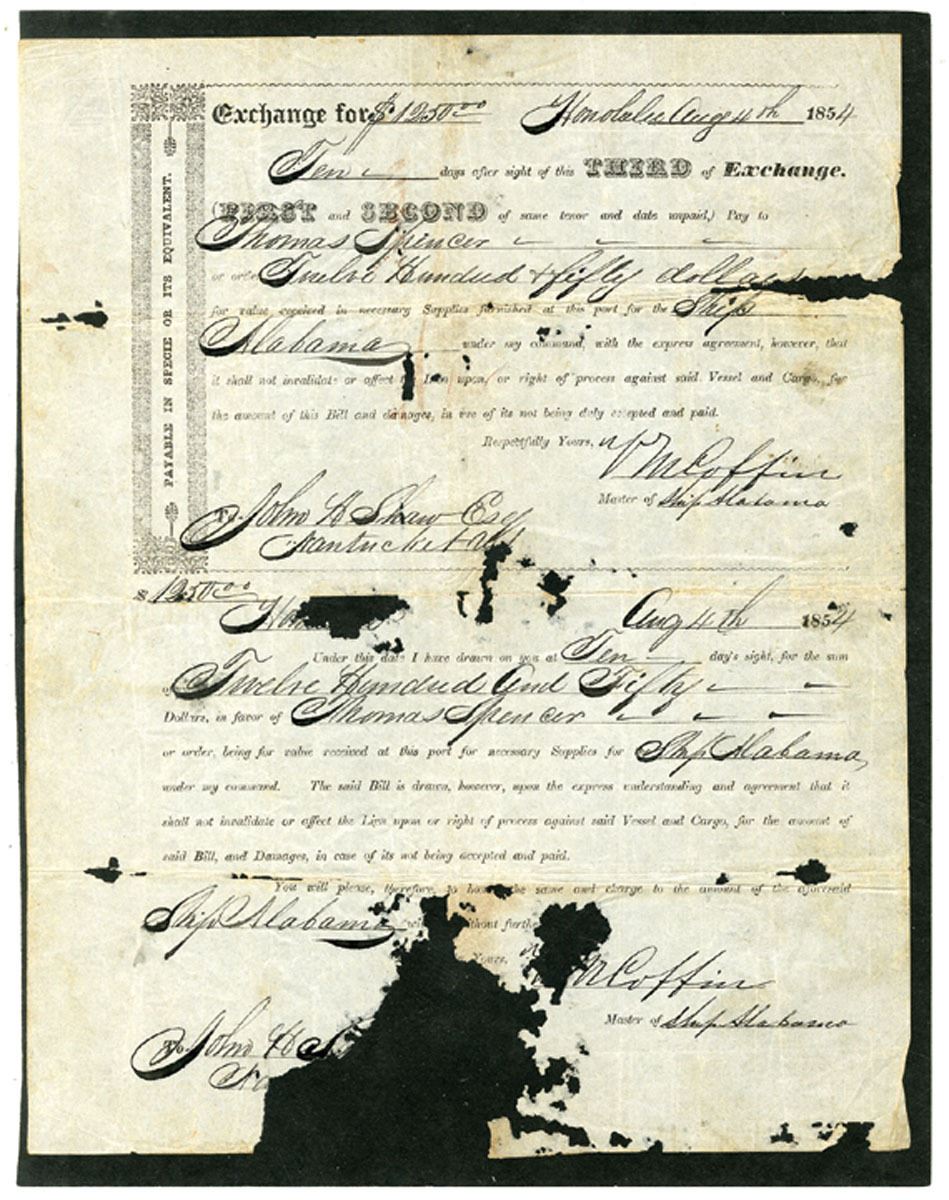 PAYABLE IN SPECIE OR ITS EQUIVALENT.
Exchange for $1250.00 Honolulu Aug 4th 1854
Ten days after sight of this THIRD of Exchange.
(FIRST and SECOND of same tenor and date unpaid,) Pay to
Thomas Spencer
or order Twelve Hundred & fifty dollars
for value received in necessary Supplies furnished at this port for the Ship
Alabama under my command, with the express agreement, however, that
it shall not invalidate or affect Lien upon, or right of process against said Vessel and Cargo, for
the amount of this Bill and damages, in of its not being duly accepted and paid.
Respectfully Yours, Coffin
Master of Ship Alabama
To John H Shaw Esq
Nantucket
$1250.00
Aug 4th 1854
Under this date I have drawn on you at Ten day's sight, for the sum
Twelve Hundred and Fifty
Dollars, in favor of Thomas Spencer
or order, being for value received at this port for necessary Supplies for Ship Alabama,
under my command. The said Bill is drawn, however, upon the express understanding and agreement that it
shall not invalidate or affect the Lien upon or right of process against said Vessel and Cargo, for the amount of
said Bill, and Damages, in case of its not being accepted and paid.
You will please, therefore, to the same and charge to the amount of the aforesaid
Ship Alabama
Yours, Coffin
Master of Ship Alabama
To John